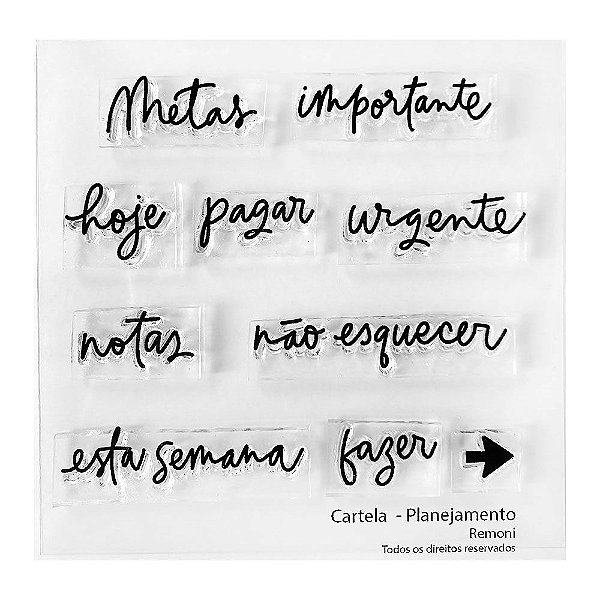 Metas importante
hoje pagar urgente
notas não esquecer
esta semana fazer
Cartela - Planejamento
Remoni
Todos os direitos reservados